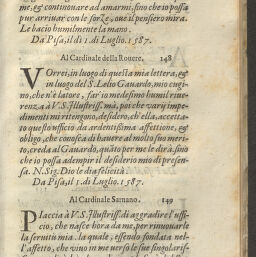 me, & continouare ad amarmi, sino che io possa
pur arriuar con le forze, oue il pensiero mira.
Le bacio humilmente la mano.
Da Pisa, il dì 1. di Luglio. 1587.
Al Cardinale della Rouere. 148
VOrrei, in luogo di questa mia lettera, &
in luogo del S. Lelio Gauardo, mio cugi-
no, che n'è latore, far io medesimo humil riue-
renza à V. S. Illustriss. mà, poi che varij impe-
dimenti mi ritengono, desidero, ch'ella, accet-
to questo ufficio da ardentissima affettione, &
obligo, che conosca di hauere al molto suo meri-
to, creda al Gauardo, quato per me le dirà, sino
che io possa adempir il desiderio mio di presen-
sa. N. Sig. Dio le dia felicità.
Da Pisa, il dì 1. di Luglio. 1587.
Al Cardinale Sarnano. 149
PIaccia à V. S. Illustriss. di aggradire l'uffi-
cio, che nasce hora da me, per rinouarle
la seruitù mia. la quale, essendo fondata nel-
l'affetto, che viuo in me verso le sue singolaris-